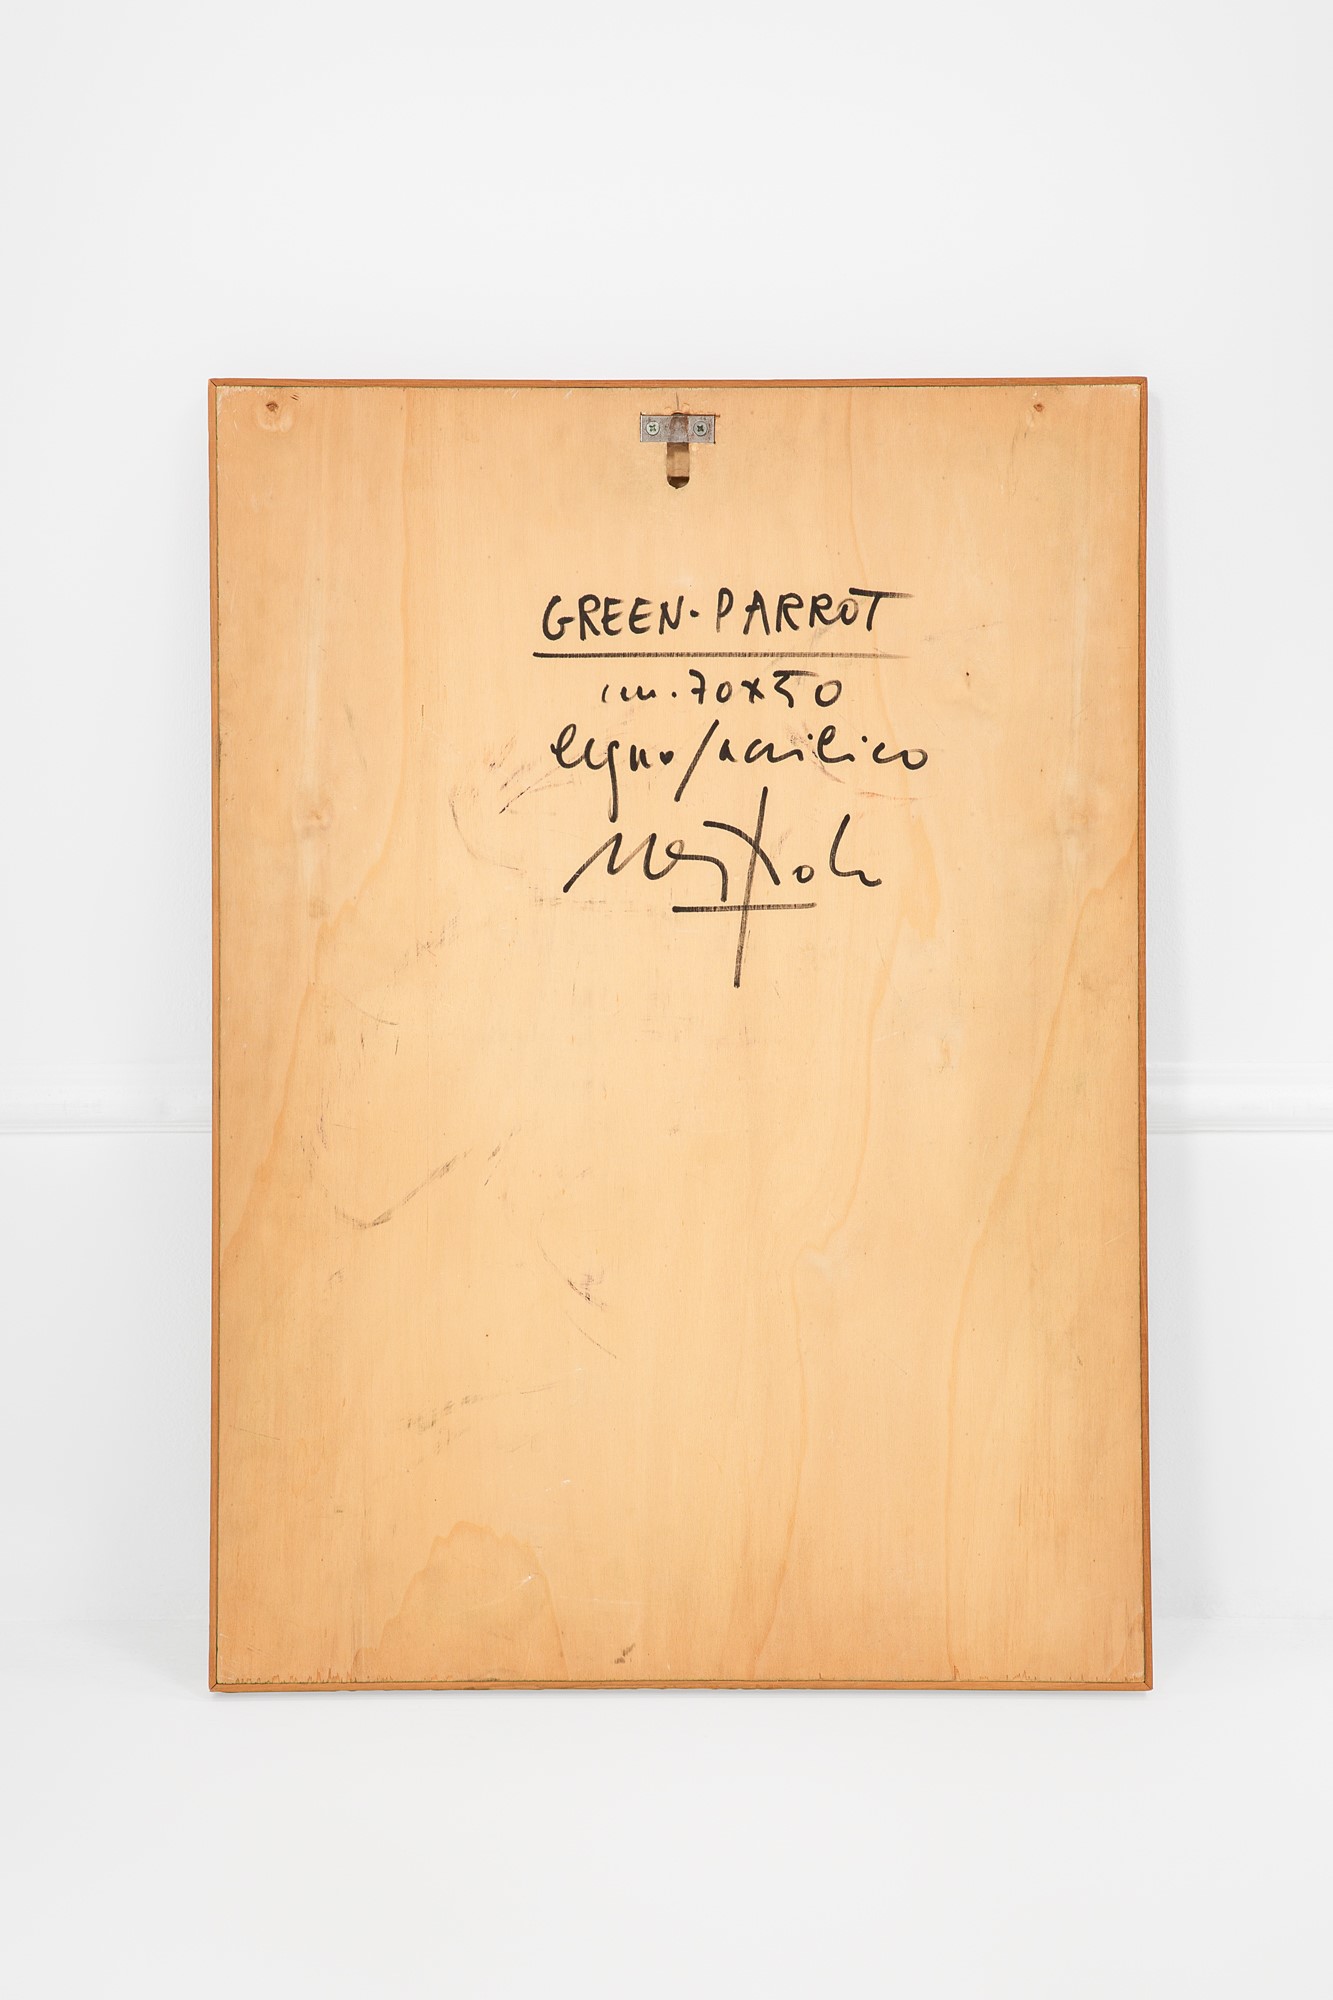 GREEN-PARROT
cm. 70x50
legno/acrilico